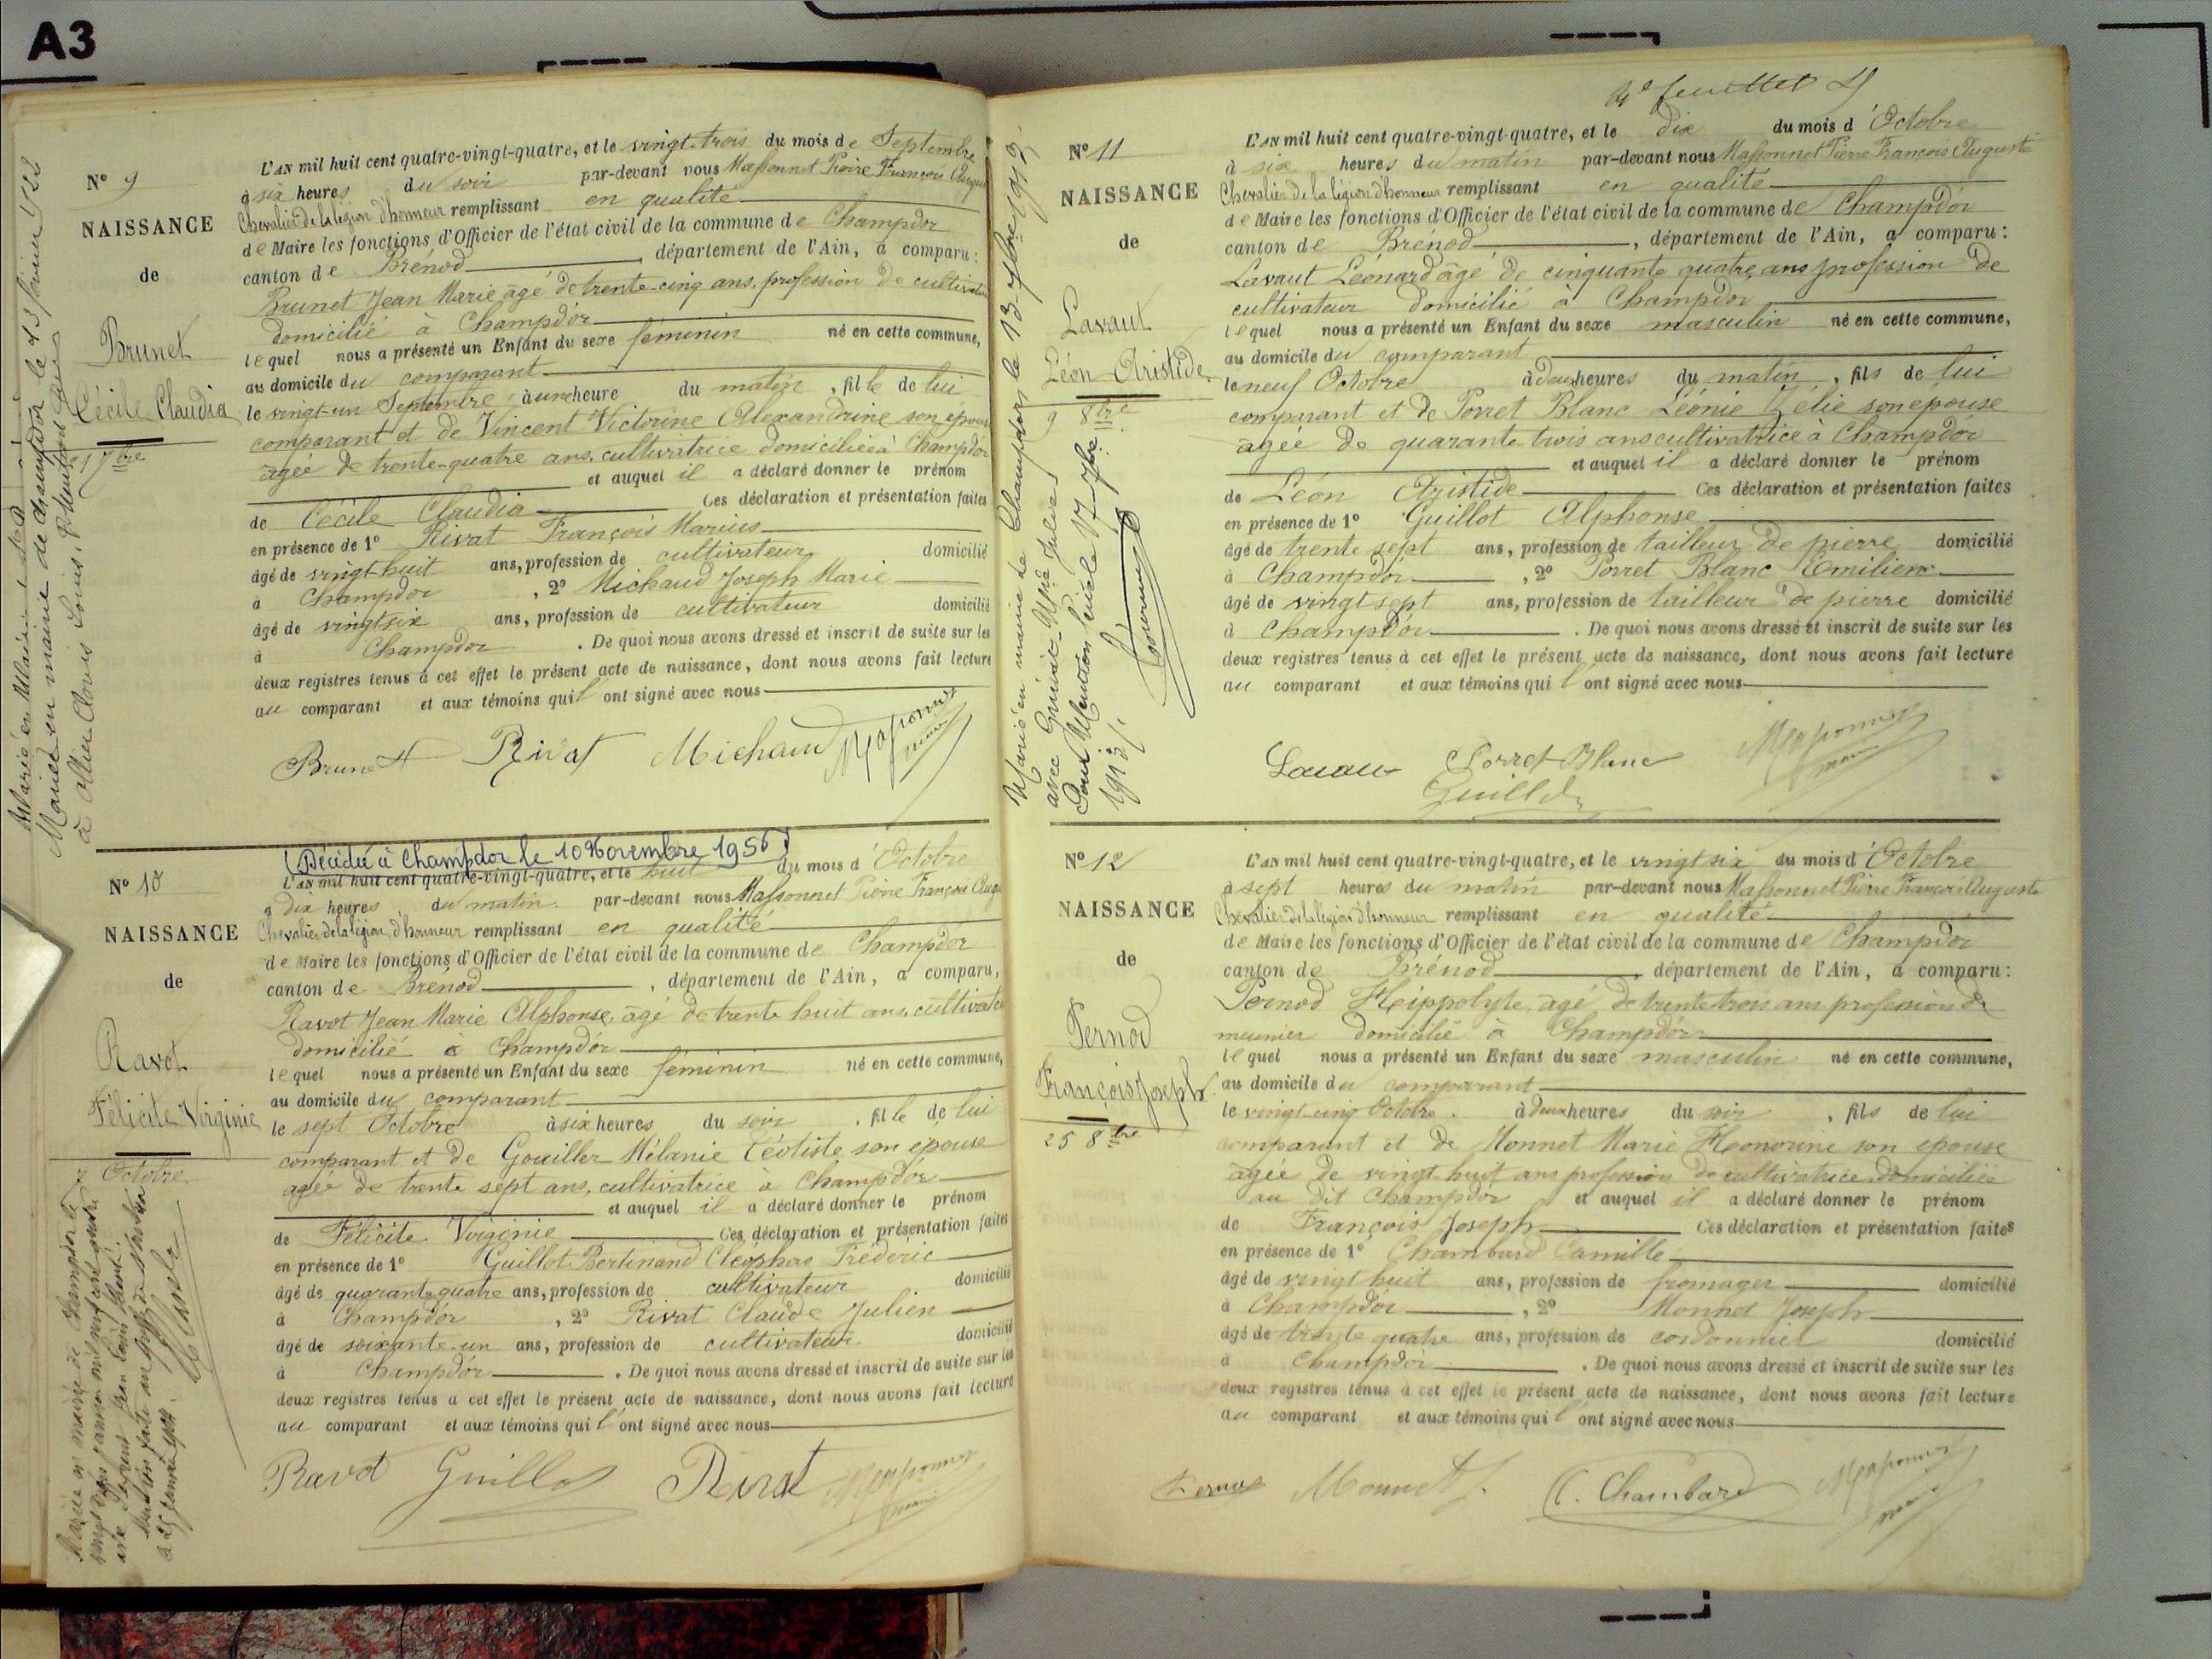 A3
N° 9
NAISSANCE
de
Brunet
Cécile Claudia
L'AN mil huit cent quatre-vingt-quatre, et le vingt-trois du mois de Septembre
à six heures du soir par-devant nous Massonnet Pierre François
Chevalier de la légion d'honneur remplissant en qualité
de Maire les fonctions d'Officier de l'état civil de la commune de Champdor
canton de Brénod, département de l'Ain, a comparu :
Brunet Jean Marie âgé de trente-cinq ans, profession de cultivateur
domicilié à Champdor
lequel nous a présenté un Enfant du sexe féminin né en cette commune,
au domicile du comparant
le vingt-un Septembre à une heure du matin, fille de lui
comparant et de Vincent Victorine Alexandrine son épouse
agée de trente-quatre ans, cultivatrice domiciliée à Champdor
et auquel il a déclaré donner le prénom
de Cécile Claudia Ces déclaration et présentation faites
en présence de 1° Rivat François Marius
âgé de vingt-huit ans, profession de cultivateur domicilié
à Champdor, 2° Michaud Joseph Marie
âgé de vingt six ans, profession de cultivateur domicilié
à Champdor. De quoi nous avons dressé et inscrit de suite sur les
deux registres tenus à cet effet le présent acte de naissance, dont nous avons fait lecture
au comparant et aux témoins qui l'ont signé avec nous
Brunet Rivat Michaud Massonnet
maire
Mariée en mairie de Champdor le
à Clovis Louis
N° 10
NAISSANCE
de
Ravot
Félicité Virginie
7 Octobre
(Décédée à Champdor le 10 Novembre 1956)
L'AN mil huit cent quatre-vingt-quatre, et le huit du mois d'Octobre
à dix heures du matin par-devant nous Massonnet Pierre François
Chevalier de la légion d'honneur remplissant en qualité
de Maire les fonctions d'Officier de l'état civil de la commune de Champdor
canton de Brénod, département de l'Ain, a comparu,
Ravot Jean Marie Alphonse, âgé de trente huit ans, cultivateur
domicilié à Champdor
lequel nous a présenté un Enfant du sexe féminin né en cette commune,
au domicile du comparant
le sept Octobre à six heures du soir, fille de lui
comparant et de Gouiller Mélanie Téotiste son épouse
agée de trente sept ans, cultivatrice à Champdor
et auquel il a déclaré donner le prénom
de Félicité Virginie Ces déclaration et présentation faites
en présence de 1° Guillot Bertinand Cléophas Fréderic
âgé de quarante quatre ans, profession de cultivateur domicilié
à Champdor, 2° Rivat Claude Julien
âgé de soixante-un ans, profession de cultivateur domicilié
à Champdor. De quoi nous avons dressé et inscrit de suite sur les
deux registres tenus a cet effet le présent acte de naissance, dont nous avons fait lecture
au comparant et aux témoins qui l'ont signé avec nous
Ravot Guillot Rivat Massonnet
maire
Mariée en mairie de Champdor le
4e feuillet
N° 11
NAISSANCE
de
Lavaut
Léon Aristide
9 8bre
L'AN mil huit cent quatre-vingt-quatre, et le dix du mois d'Octobre
à six heures du matin par-devant nous Massonnet Pierre François Auguste
Chevalier de la légion d'honneur remplissant en qualité
de Maire les fonctions d'Officier de l'état civil de la commune de Champdor
canton de Brénod, département de l'Ain, a comparu :
Lavaut Léonard âgé de cinquante quatre ans profession de
cultivateur domicilié à Champdor
lequel nous a présenté un Enfant du sexe masculin né en cette commune,
au domicile du comparant
le neuf Octobre à deux heures du matin, fils de lui
comparant et de Porret Blanc Léonie Zélie son épouse
agée de quarante trois ans cultivatrice à Champdor
et auquel il a déclaré donner le prénom
de Léon Aristide Ces déclaration et présentation faites
en présence de 1° Guillot Alphonse
âgé de trente sept ans, profession de tailleur de pierre domicilié
à Champdor, 2° Porret Blanc Emilien
âgé de vingt sept ans, profession de tailleur de pierre domicilié
à Champdor. De quoi nous avons dressé et inscrit de suite sur les
deux registres tenus à cet effet le présent acte de naissance, dont nous avons fait lecture
au comparant et aux témoins qui l'ont signé avec nous
Lavaut Porret-Blanc Massonnet
Guillot maire
Marié en mairie de Champdor le 13 7bre 1913
avec
Pour Mention le 17 7bre
N° 12
NAISSANCE
de
Pernod
François Joseph
25 8bre
L'AN mil huit cent quatre-vingt-quatre, et le vingt six du mois d'Octobre
à sept heures du matin par-devant nous Massonnet Pierre François Auguste
Chevalier de la légion d'honneur remplissant en qualité
de Maire les fonctions d'Officier de l'état civil de la commune de Champdor
canton de Brénod, département de l'Ain, a comparu :
Pernod Hippolyte, agé de trente trois ans profession de
meunier domicilié à Champdor
lequel nous a présenté un Enfant du sexe masculin né en cette commune,
au domicile du comparant
le vingt cinq Octobre à deux heures du soir, fils de lui
comparant et de Monnet Marie Honorine son épouse
agée de vingt-huit ans profession de cultivatrice domiciliée
au dit Champdor et auquel il a déclaré donner le prénom
de François Joseph Ces déclaration et présentation faites
en présence de 1° Chambard Camille
âgé de vingt huit ans, profession de fromager domicilié
à Champdor, 2° Monnet Joseph
âgé de trente quatre ans, profession de cordonnier domicilié
à Champdor. De quoi nous avons dressé et inscrit de suite sur les
deux registres tenus à cet effet le présent acte de naissance, dont nous avons fait lecture
au comparant et aux témoins qui l'ont signé avec nous
Pernod Monnet J. C. Chambard Massonnet
maire